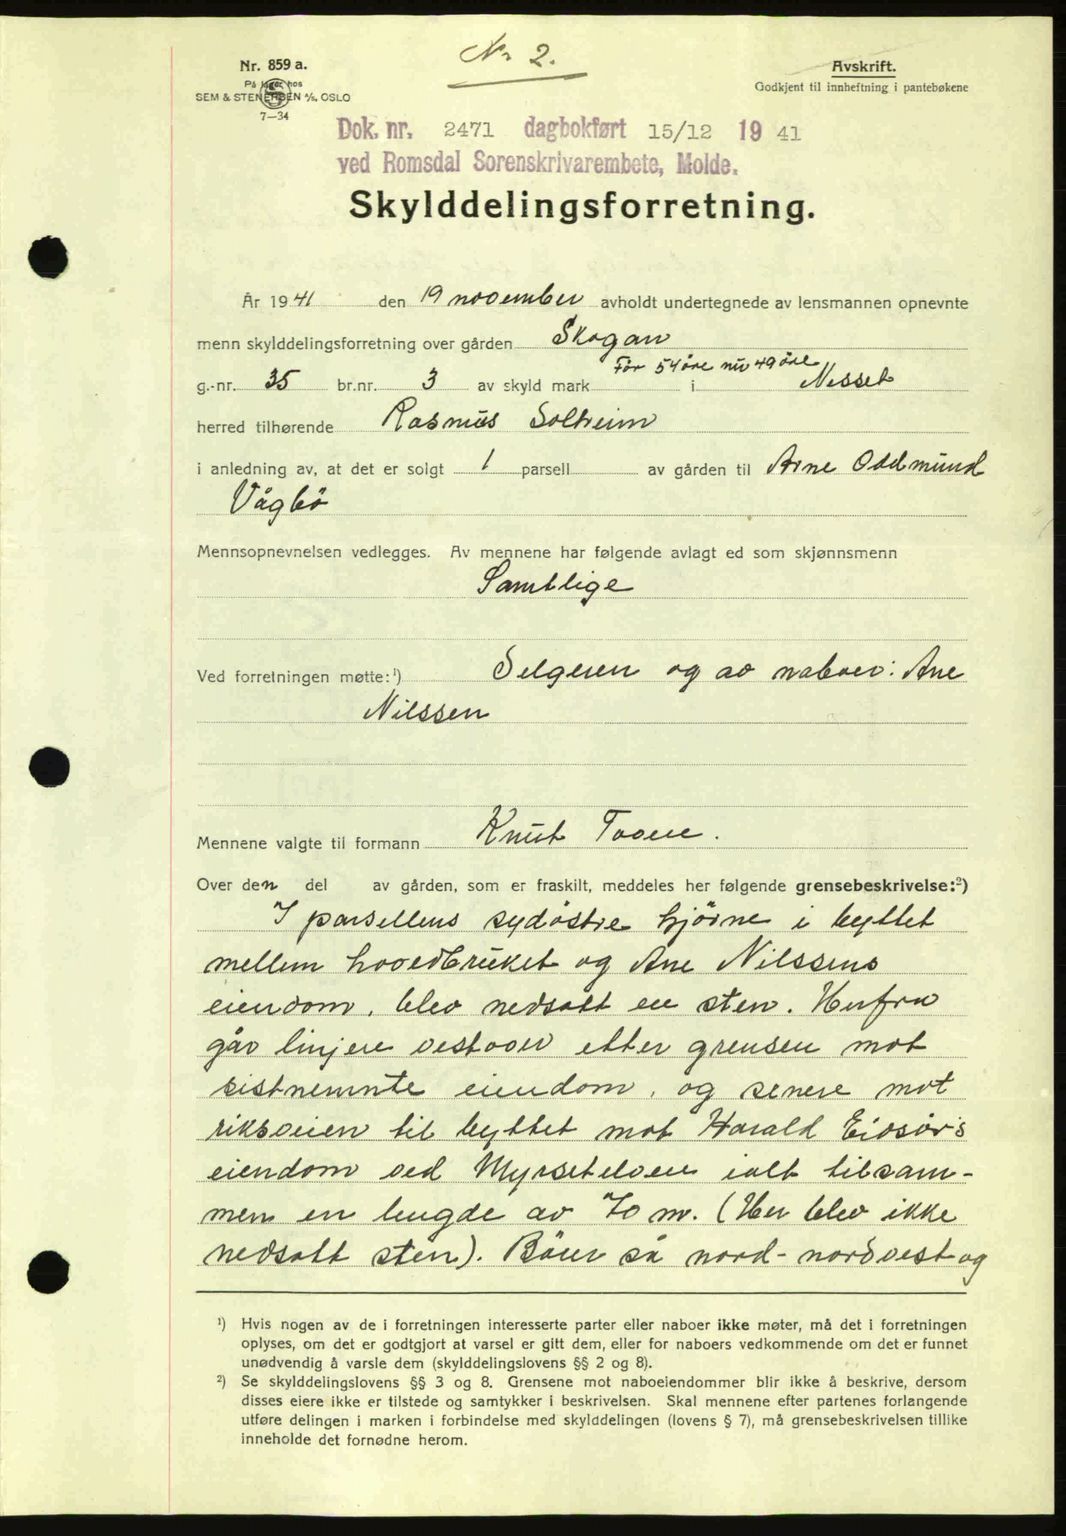 Nr. 2.
Nr. 859 a.
På lager hos
SEM & STENERSEN A/S, OSLO
7—34
Avskrift.
Godkjent til innheftning i pantebøkene
Dok. nr. 2471 dagbokført 15/12 19 41
ved Romsdal Sorenskrivarembete, Molde.
Skylddelingsforretning.
År 1941 den 19 november avholdt undertegnede av lensmannen opnevnte
menn skylddelingsforretning over gården Skogan
g.-nr. 35 br.nr. 3 av skyld mark Før 54 øre nu 49 øre i Nesset
herred tilhørende Rasmus Solheim
i anledning av, at det er solgt 1 parsell av gården til Arne Oddmund
Vågbö
Mennsopnevnelsen vedlegges. Av mennene har følgende avlagt ed som skjønnsmenn
Samtlige
Ved forretningen møtte:¹) Selgeren og av naboer: Ane
Nilssen
Mennene valgte til formann Knut Toven.
Over den del av gården, som er fraskilt, meddeles her følgende grensebeskrivelse:²)
I parsellens sydöstre hjörne i byttet
mellem hovedbruket og Ane Nilssens
eiendom, blev nedsatt en sten. Herfra
går linjen vestover etter grensen mot
sistnemnte eiendom, og senere mot
riksveien til byttet mot Harald Eidsör's
eiendom ved Myrsetelven ialt tilsam-
men en lengde av 70 m. (Her blev ikke
nedsatt sten). Böier så nord-nordvest og
¹) Hvis nogen av de i forretningen interesserte parter eller naboer ikke møter, må det i forretningen
oplyses, om det er godtgjort at varsel er gitt dem, eller for naboers vedkommende om det er funnet
unødvendig å varsle dem (skylddelingslovens §§ 2 og 8).
²) Se skylddelingslovens §§ 3 og 8. Grensene mot naboeiendommer blir ikke å beskrive, dersom
disses eiere ikke er tilstede og samtykker i beskrivelsen. Skal mennene efter partenes forlangende
utføre delingen i marken i forbindelse med skylddelingen (lovens § 7), må grensebeskrivelsen tillike
inneholde det fornødne herom.